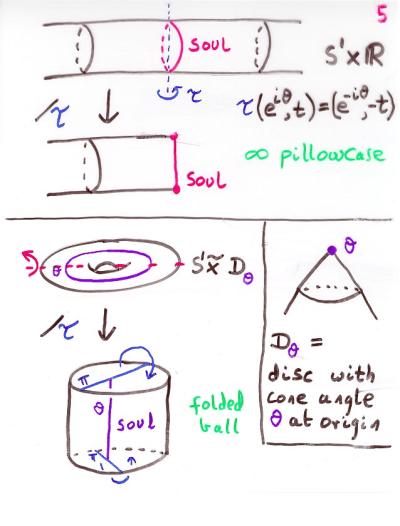 5
SOUL
S¹xR
τ
τ(e^{iθ},t)=(e^{-iθ},-t)
/τ
∞ pillowcase
SOUL
θ
S¹x̃ D_θ
/τ
π
θ
SOUL
π
π
folded
ball
θ
D_θ =
disc with
cone angle
θ at origin